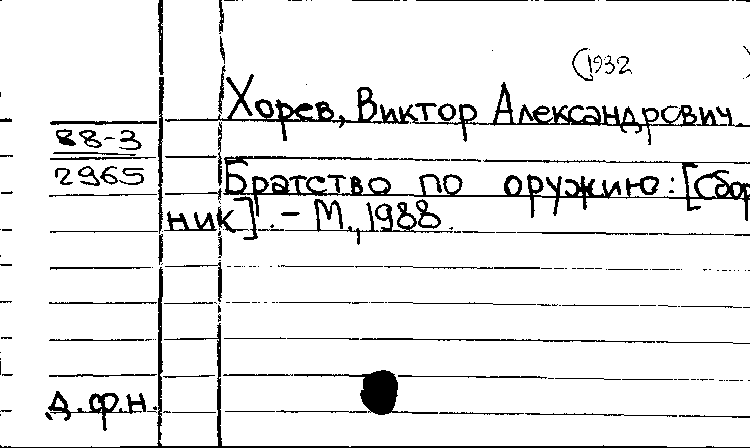 (1932
Хорев, Виктор Александрович.
88-3
2965
Братство по оружию: [Сбор
ник]. - М., 1988.
д.ф.н.